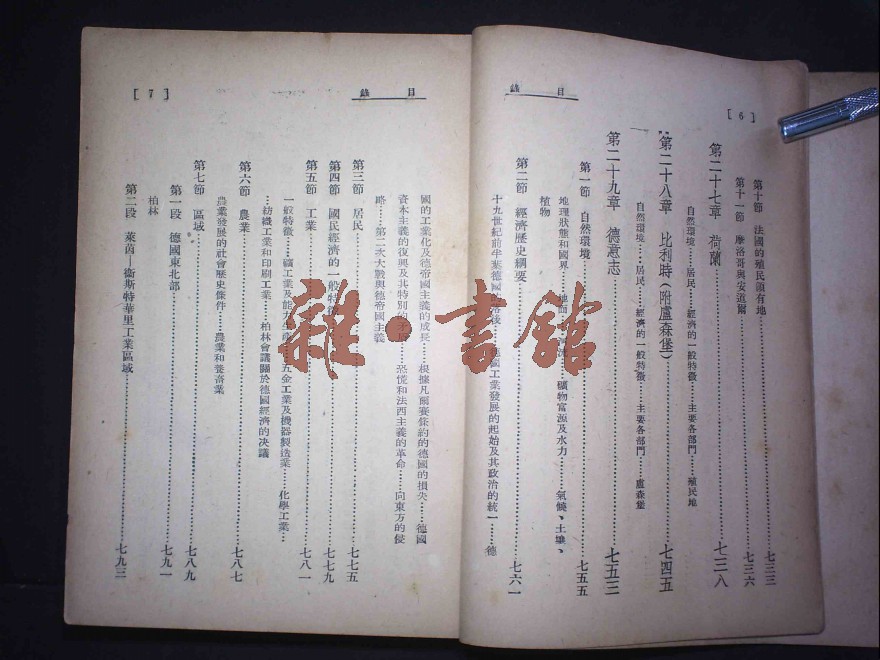 [6]
目錄
第十節 法國的殖民領有地……七三三
第十一節 摩洛哥與安道爾……七三六
第二十七章 荷蘭……七三八
自然環境……居民……經濟的一般特徵……主要各部門……殖民地
第二十八章 比利時(附盧森堡)……七四五
自然環境……居民……經濟的一般特徵……主要各部門……盧森堡
第二十九章 德意志……七五三
第一節 自然環境……七五五
地理狀態和國界……地面……礦物富源及水力……氣候、土壤、
植物
第二節 經濟歷史綱要……七六一
十九世紀前半葉德國的落後……德國工業發展的起始及其政治的統一……德
[7]
目錄
國的工業化及德帝國主義的成長……根據凡爾賽條約的德國的損失……德國
資本主義的復興及其特別的矛盾……恐慌和法西主義的革命……向東方的侵
路……第二次大戰與德帝國主義
第三節 居民……七七五
第四節 國民經濟的一般特徵……七七九
第五節 工業……七八一
一般特徵……礦工業及能力生產……五金工業及機器製造業……化學工業…
…紡織工業和印刷工業……柏林會議關於德國經濟的決議
第六節 農業……七八七
農業發展的社會歷史條件……農業和養畜業
第七節 區域……七八九
第一段 德國東北部……七九一
柏林
第二段 萊茵—衞斯特華里工業區域……七九三
雜·書館